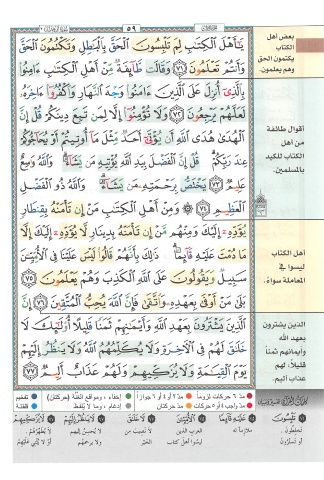 ٥٩
يَٰٓأَهْلَ ٱلْكِتَٰبِ لِمَ تَلْبِسُونَ ٱلْحَقَّ بِٱلْبَٰطِلِ وَتَكْتُمُونَ ٱلْحَقَّ
وَأَنتُمْ تَعْلَمُونَ ٧١ وَقَالَت طَّآئِفَةٌ مِّنْ أَهْلِ ٱلْكِتَٰبِ ءَامِنُوا۟
بِٱلَّذِىٓ أُنزِلَ عَلَى ٱلَّذِينَ ءَامَنُوا۟ وَجْهَ ٱلنَّهَارِ وَٱكْفُرُوٓا۟ ءَاخِرَهُۥ
لَعَلَّهُمْ يَرْجِعُونَ ٧٢ وَلَا تُؤْمِنُوٓا۟ إِلَّا لِمَن تَبِعَ دِينَكُمْ قُلْ إِنَّ
ٱلْهُدَىٰ هُدَى ٱللَّهِ أَن يُؤْتَىٰٓ أَحَدٌ مِّثْلَ مَآ أُوتِيتُمْ أَوْ يُحَآجُّوكُمْ
عِندَ رَبِّكُمْ قُلْ إِنَّ ٱلْفَضْلَ بِيَدِ ٱللَّهِ يُؤْتِيهِ مَن يَشَآءُ وَٱللَّهُ وَٰسِعٌ
عَلِيمٌ ٧٣ يَخْتَصُّ بِرَحْمَتِهِۦ مَن يَشَآءُ وَٱللَّهُ ذُو ٱلْفَضْلِ
ٱلْعَظِيمِ ٧٤ ۞ وَمِنْ أَهْلِ ٱلْكِتَٰبِ مَنْ إِن تَأْمَنْهُ بِقِنطَارٍ
يُؤَدِّهِۦٓ إِلَيْكَ وَمِنْهُم مَّنْ إِن تَأْمَنْهُ بِدِينَارٍ لَّا يُؤَدِّهِۦٓ إِلَيْكَ إِلَّا
مَا دُمْتَ عَلَيْهِ قَآئِمًا ذَٰلِكَ بِأَنَّهُمْ قَالُوا۟ لَيْسَ عَلَيْنَا فِى ٱلْأُمِّيِّۦنَ
سَبِيلٌ وَيَقُولُونَ عَلَى ٱللَّهِ ٱلْكَذِبَ وَهُمْ يَعْلَمُونَ ٧٥
بَلَىٰ مَنْ أَوْفَىٰ بِعَهْدِهِۦ وَٱتَّقَىٰ فَإِنَّ ٱللَّهَ يُحِبُّ ٱلْمُتَّقِينَ ٧٦ إِنَّ
ٱلَّذِينَ يَشْتَرُونَ بِعَهْدِ ٱللَّهِ وَأَيْمَٰنِهِمْ ثَمَنًا قَلِيلًا أُو۟لَٰٓئِكَ لَا
خَلَٰقَ لَهُمْ فِى ٱلْءَاخِرَةِ وَلَا يُكَلِّمُهُمُ ٱللَّهُ وَلَا يَنظُرُ إِلَيْهِمْ
يَوْمَ ٱلْقِيَٰمَةِ وَلَا يُزَكِّيهِمْ وَلَهُمْ عَذَابٌ أَلِيمٌ ٧٧
بعض أهل
الكتاب
يكتمون الحق
وهم يعلمون.
أقوال طائفة
من أهل
الكتاب للكيد
بالمسلمين.
أهل الكتاب
ليسوا في
المعاملة سواءً.
الذين يشترون
بعهد الله
وأيمانهم ثمناً
قليلاً، لهم
عذاب أليم.
مد ٦ حركات لزوماً مد ٢ أو ٤ أو ٦ جوازاً إخفاء، ومواقع الغُنَّة (حركتان) تفخيم
مد واجب ٤ أو ٥ حركات مد حركتان إدغام، وما لا يُلفظ قلقلة